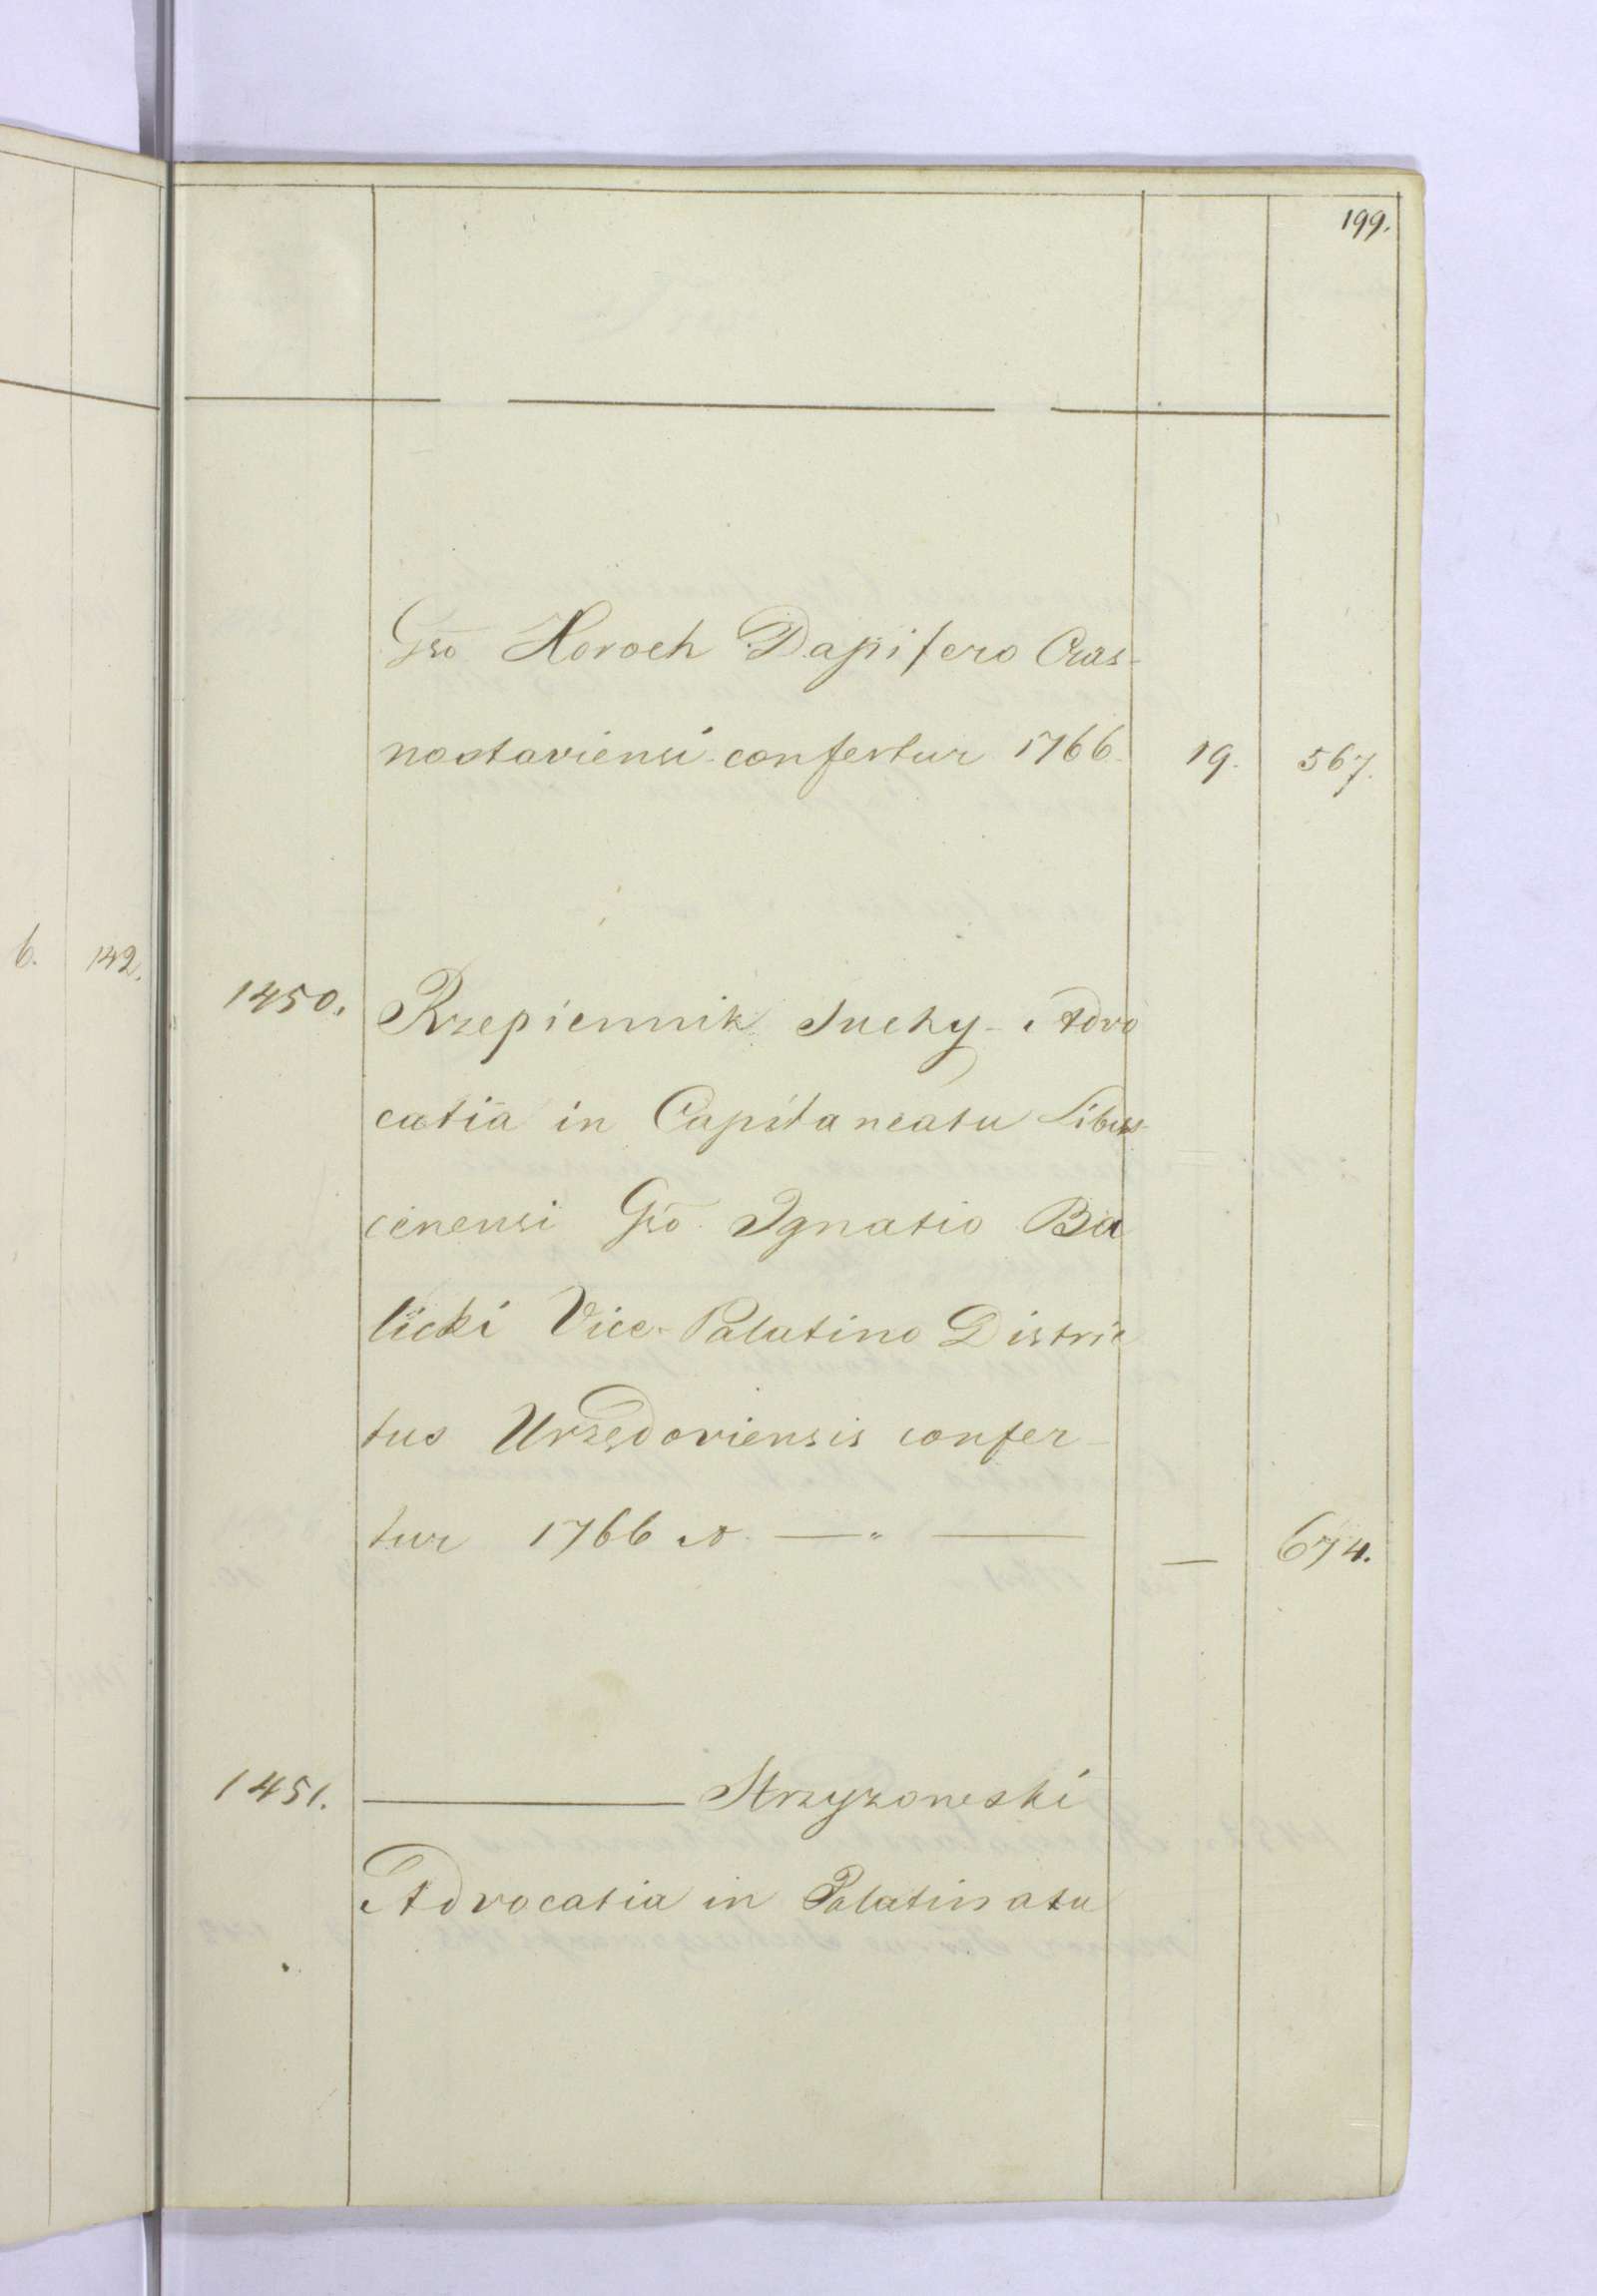 199.
Gso Horoch Dapifero Cras-
nostaviensi confertur 1766. 19. 567.
6. 142.
1450. Rzepiennik Suchy - Advo
catia in Capitaneatu Libus-
cinensi Gso Ignatio Ba
licki Vice-Palatino Distric
tus Urzędoviensis confer-
tur 1766 — " — — 674.
1451. ——— Strzyzoneski
Advocatia in Palatinatu